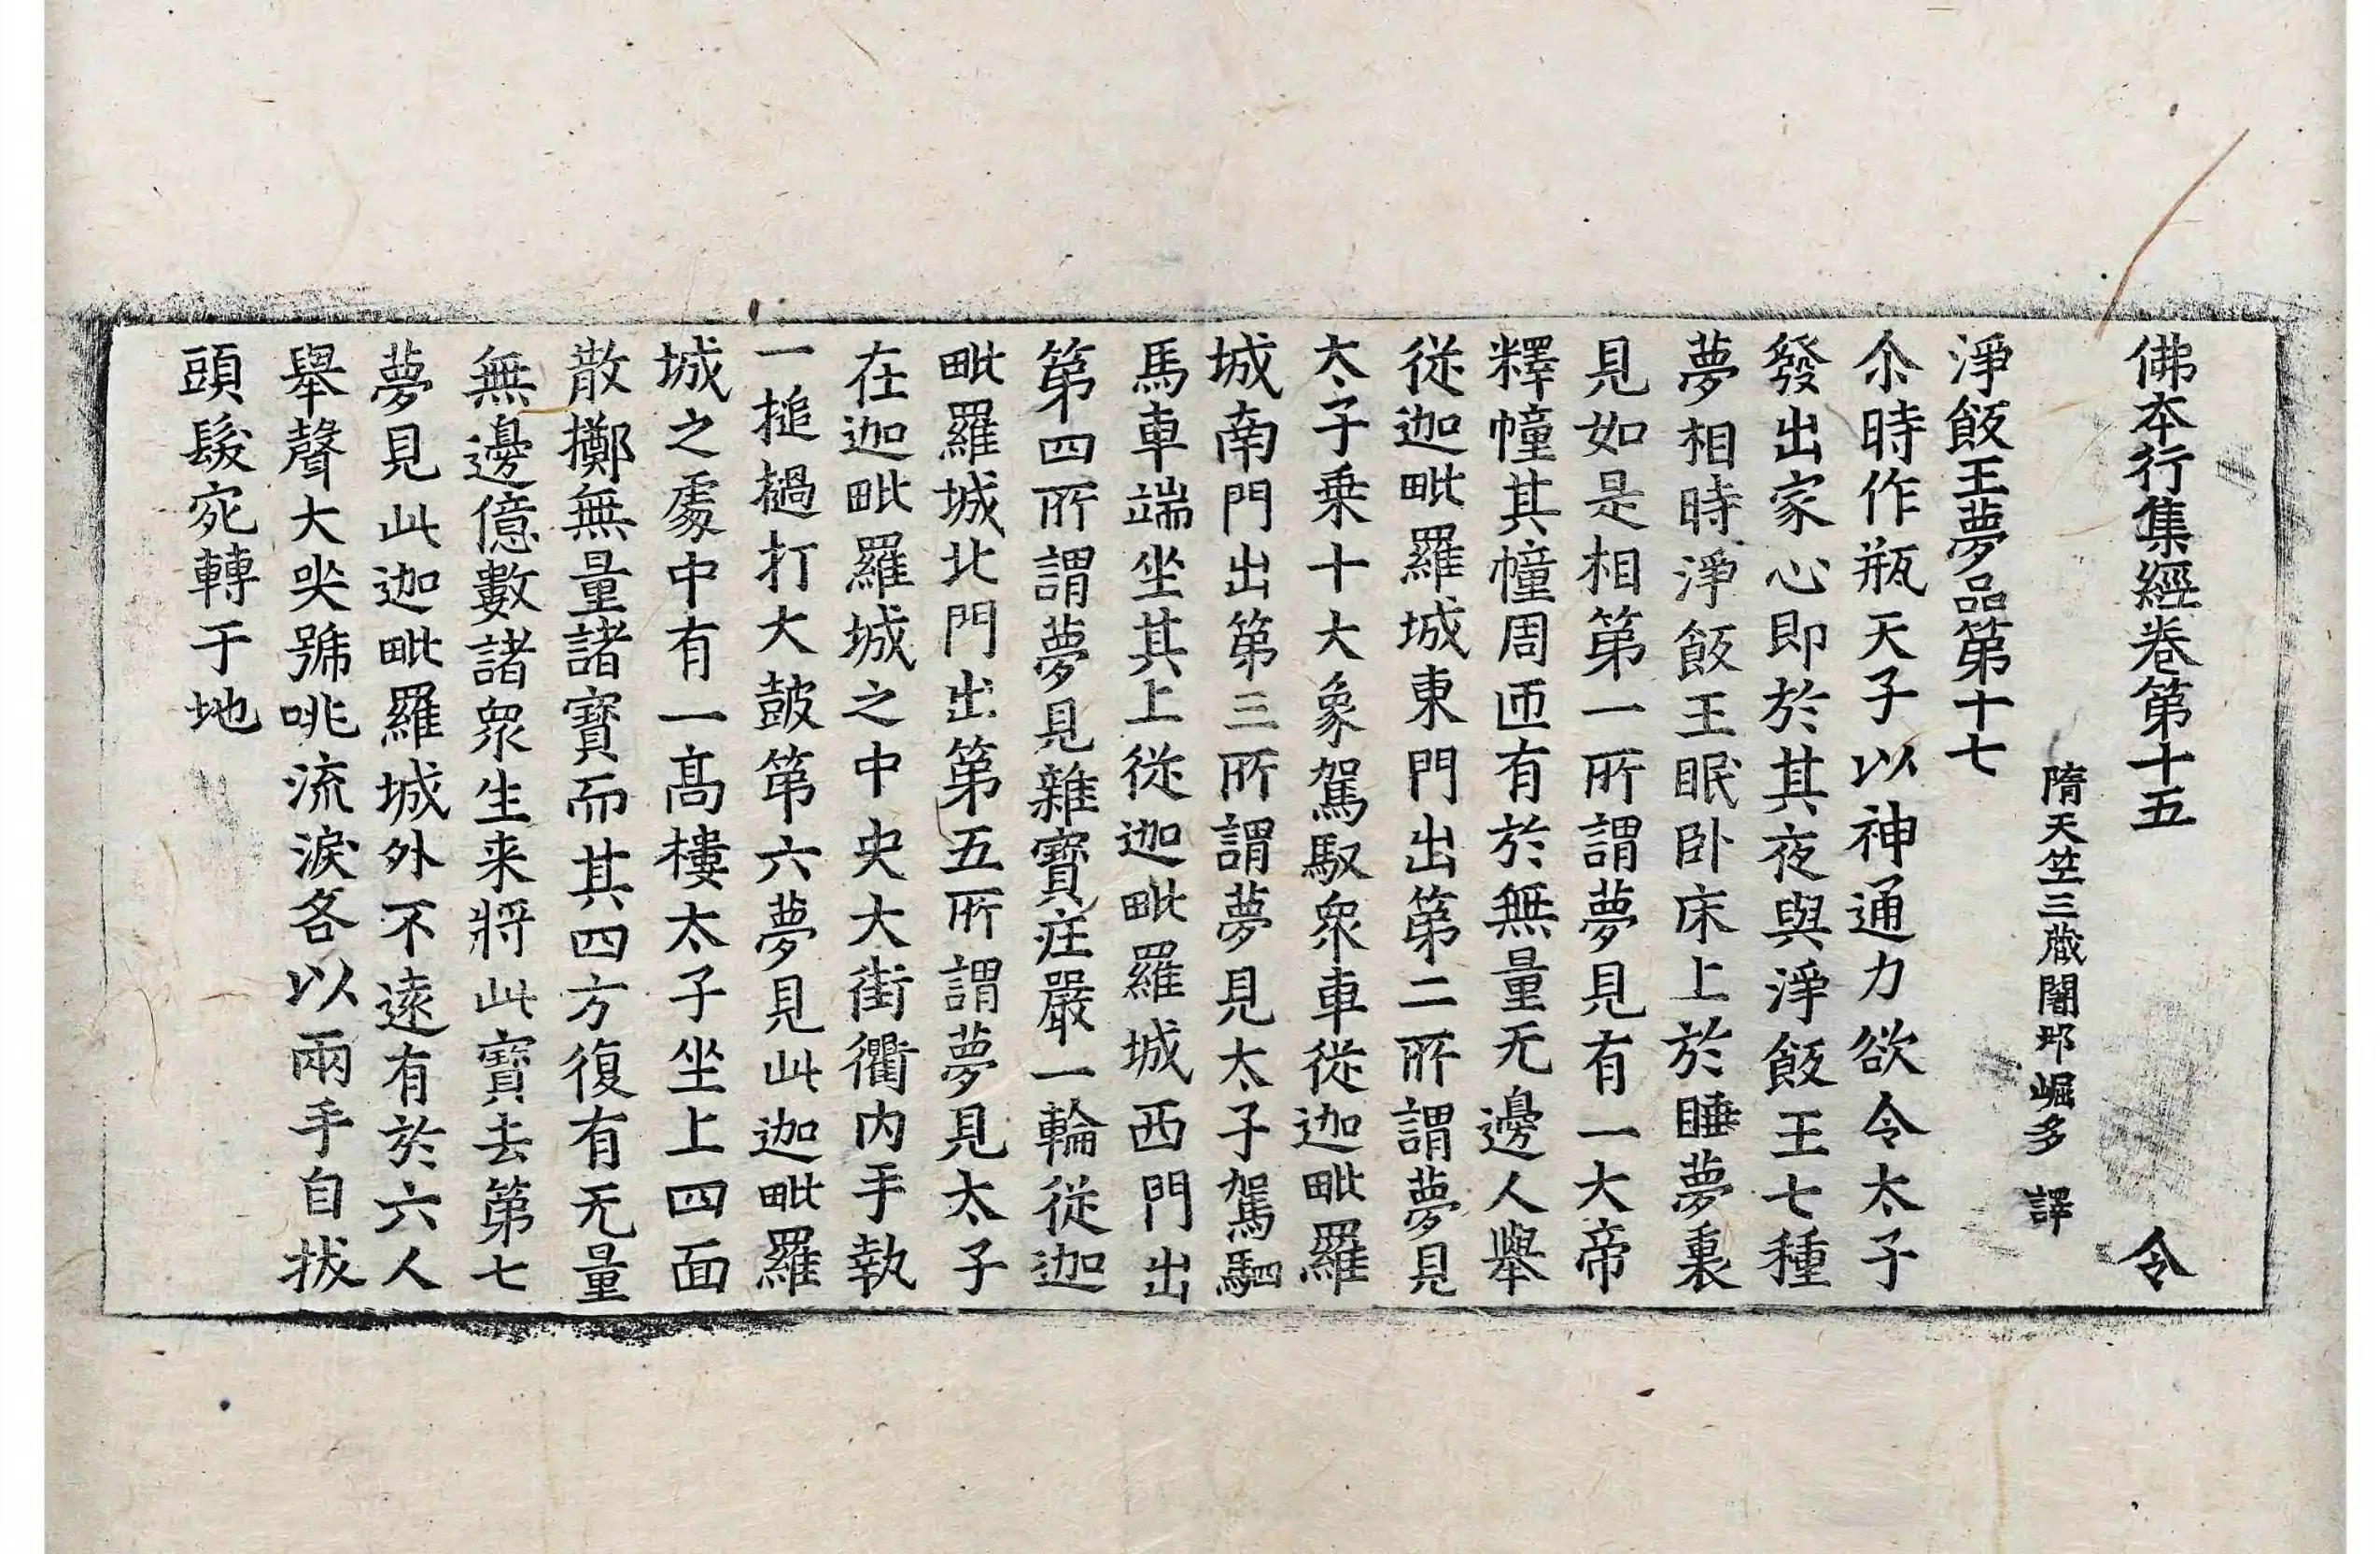 佛本行集經卷第十五 令
隋天竺三藏闍那崛多 譯
淨飯王夢品第十七
尒時作瓶天子以神通力欲令太子
發出家心即於其夜與淨飯王七種
夢相時淨飯王眠卧床上於睡夢裏
見如是相第一所謂夢見有一大帝
釋幢其幢周迊有於無量无邊人舉
從迦毗羅城東門出第二所謂夢見
太子乗十大象駕馭衆車從迦毗羅
城南門出第三所謂夢見太子駕駟
馬車端坐其上從迦毗羅城西門出
第四所謂夢見雜寶莊嚴一輪從迦
毗羅城北門出第五所謂夢見太子
在迦毗羅城之中央大街衢内手執
一搥撾打大皷第六夢見此迦毗羅
城之處中有一髙樓太子坐上四面
散擲無量諸寶而其四方復有无量
無邊億數諸衆生来將此寶去第七
夢見此迦毗羅城外不遠有於六人
舉聲大哭號咷流淚各以兩手自拔
頭髮宛轉于地